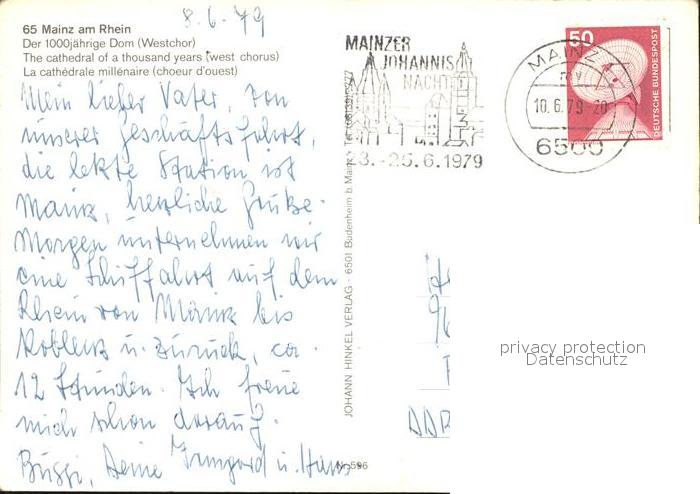 8.6.79
65 Mainz am Rhein
Der 1000jährige Dom (Westchor)
The cathedral of a thousand years (west chorus)
La cathédrale millénaire (choeur d'ouest)
Mein lieber Vater, von
unserer Geschäftsfahrt,
die letzte Station ist
Mainz, herzliche Grüße.
Morgen unternehmen wir
eine Schiffahrt auf dem
Rhein von Mainz bis
Koblenz u. zurück, ca.
12 Stunden. Ich freue
mich schon darauf.
Bussi, Deine Irmgard u. Hans
MAINZER
JOHANNIS
NACHT
23.-25.6.1979
MAINZ
10.6.79-20
6500
50
DEUTSCHE BUNDESPOST
JOHANN HINKEL VERLAG · 6501 Budenheim b. Mainz · Tel.
Nr. 596
DDR
privacy protection
Datenschutz